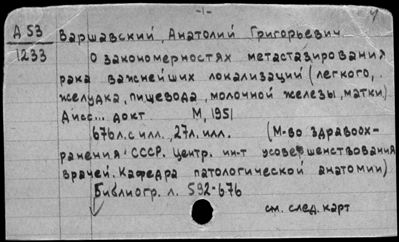 -1-
Д 53 Варшавский, Анатолий Григорьевич
1233 О закономерностях метастазирования
рака важнейших локализаций (легкого,
желудка, пищевода, молочной железы, матки)
Дисс... докт М, 1951
676 л. с илл., 27 л. илл. (М-во здравоох-
ранения СССР. Центр. ин-т усовершенствования
врачей. Кафедра патологической анатомии)
Библиогр. л. 592-676
см. след. карт